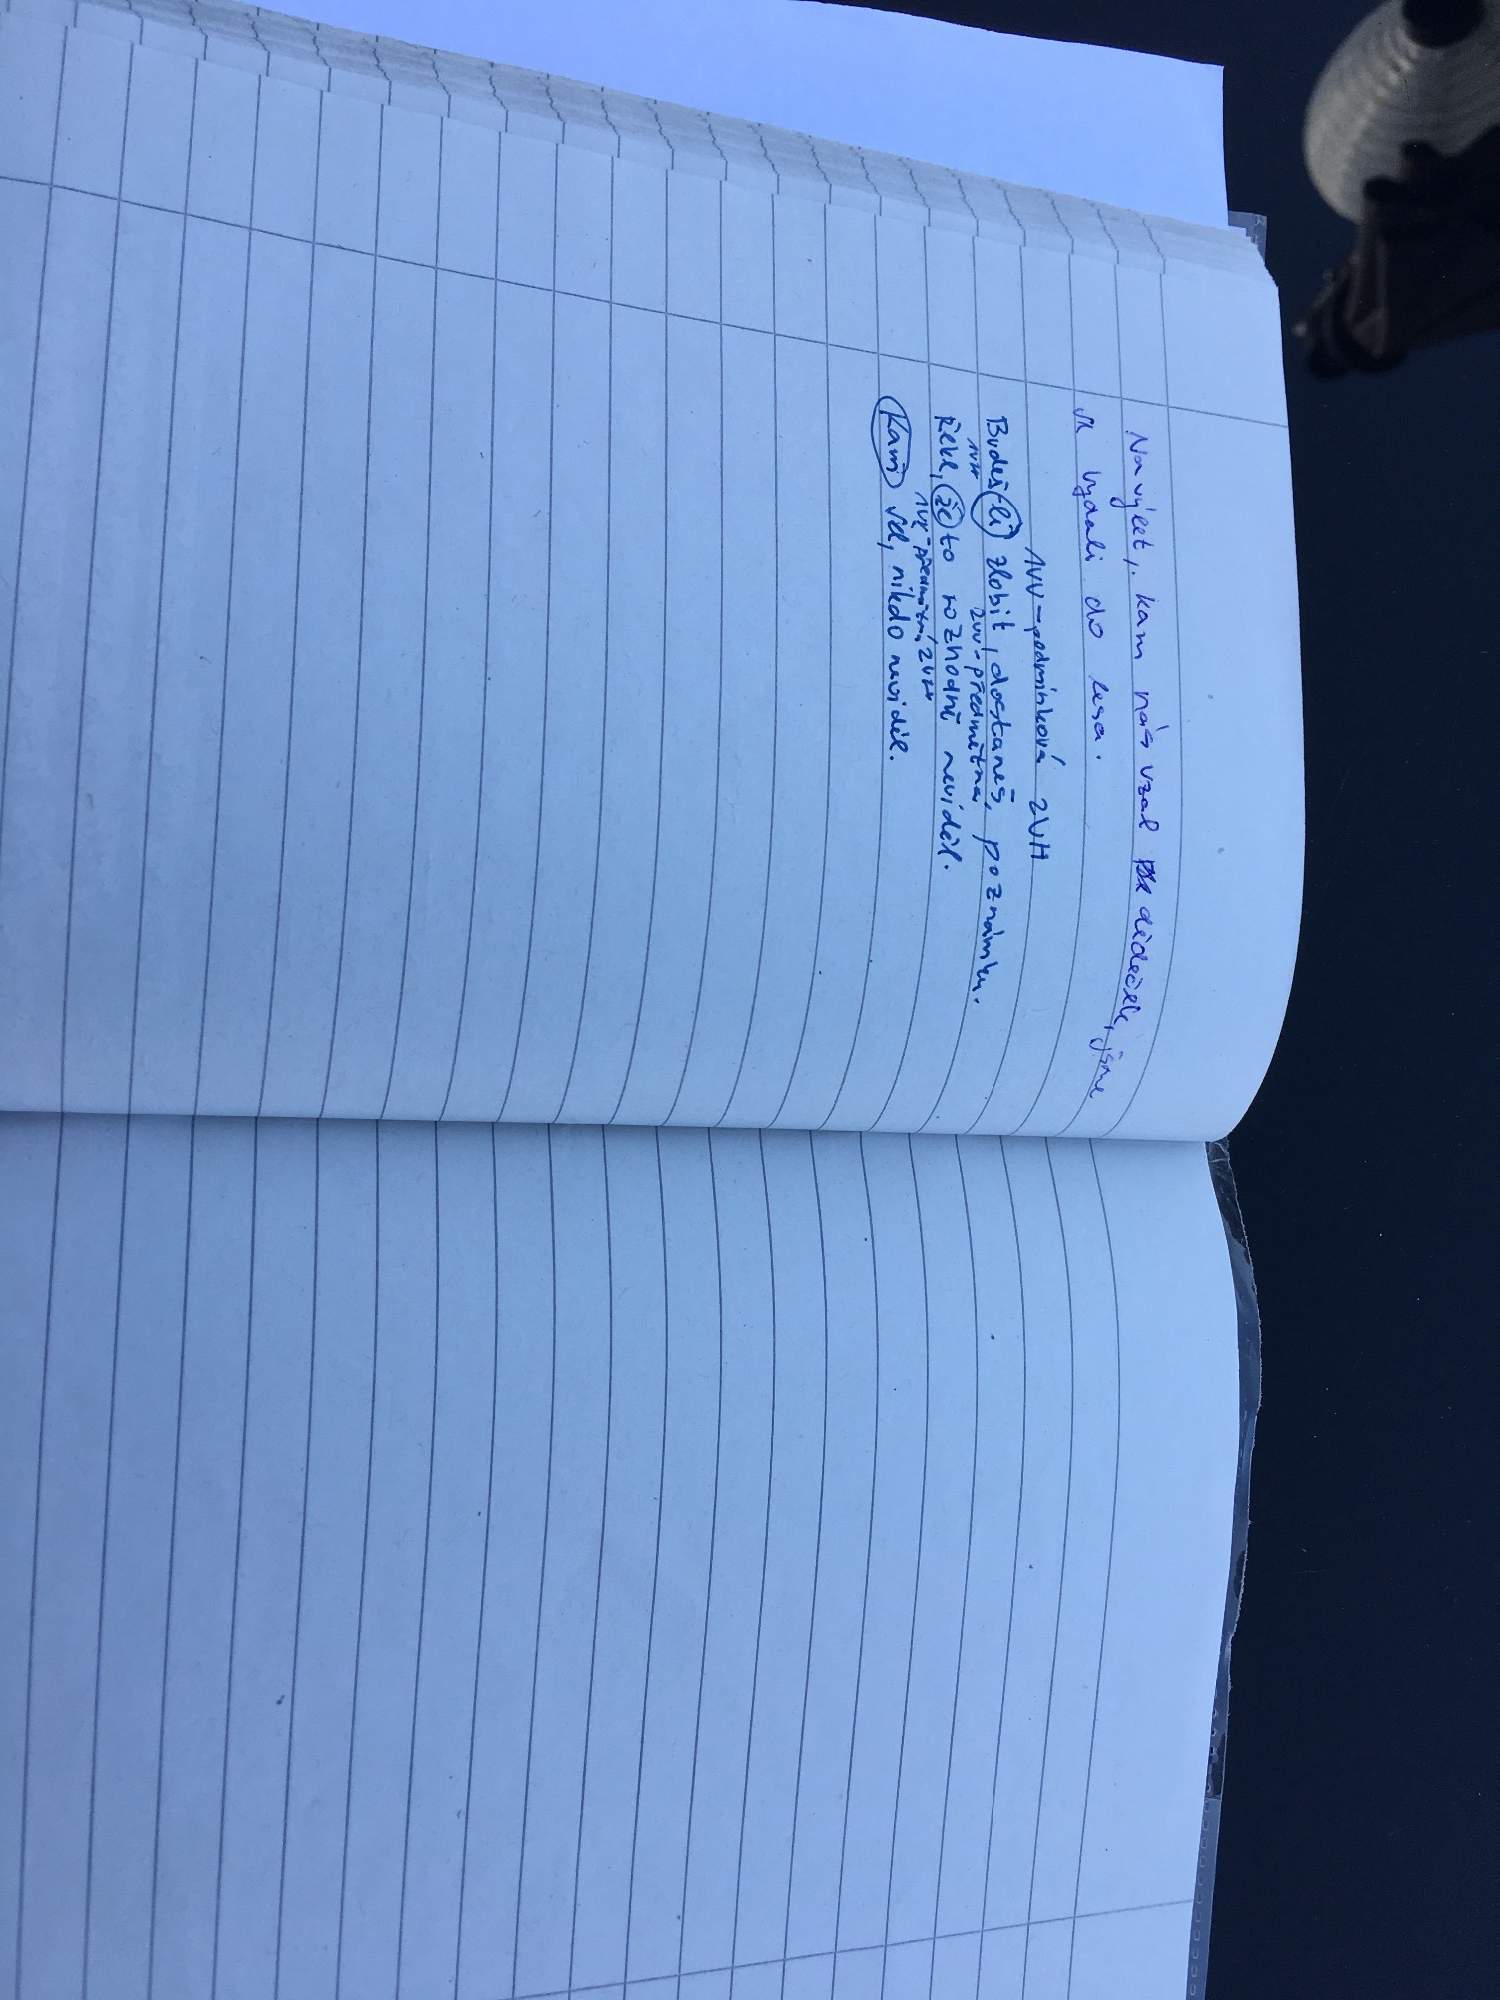 Na výlet, kam nás vzal dědeček, jsme
se vydali do lesa.
1VV-podmínková 2VH
Budeš-li zlobit, dostaneš, poznámku.
1VH 2VV-předmětná
Řekl, že to rozhodně neviděl.
1VV-předmětná, 2VH
Kam šel, nikdo neviděl.